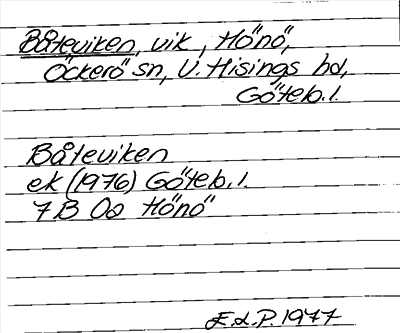 Båteviken, vik, Hönö,
Öckerö sn, V. Hisings hd,
Göteb. l.
Båteviken
ek (1976) Göteb. l.
7 B 0a Hönö
E.d.P. 1977